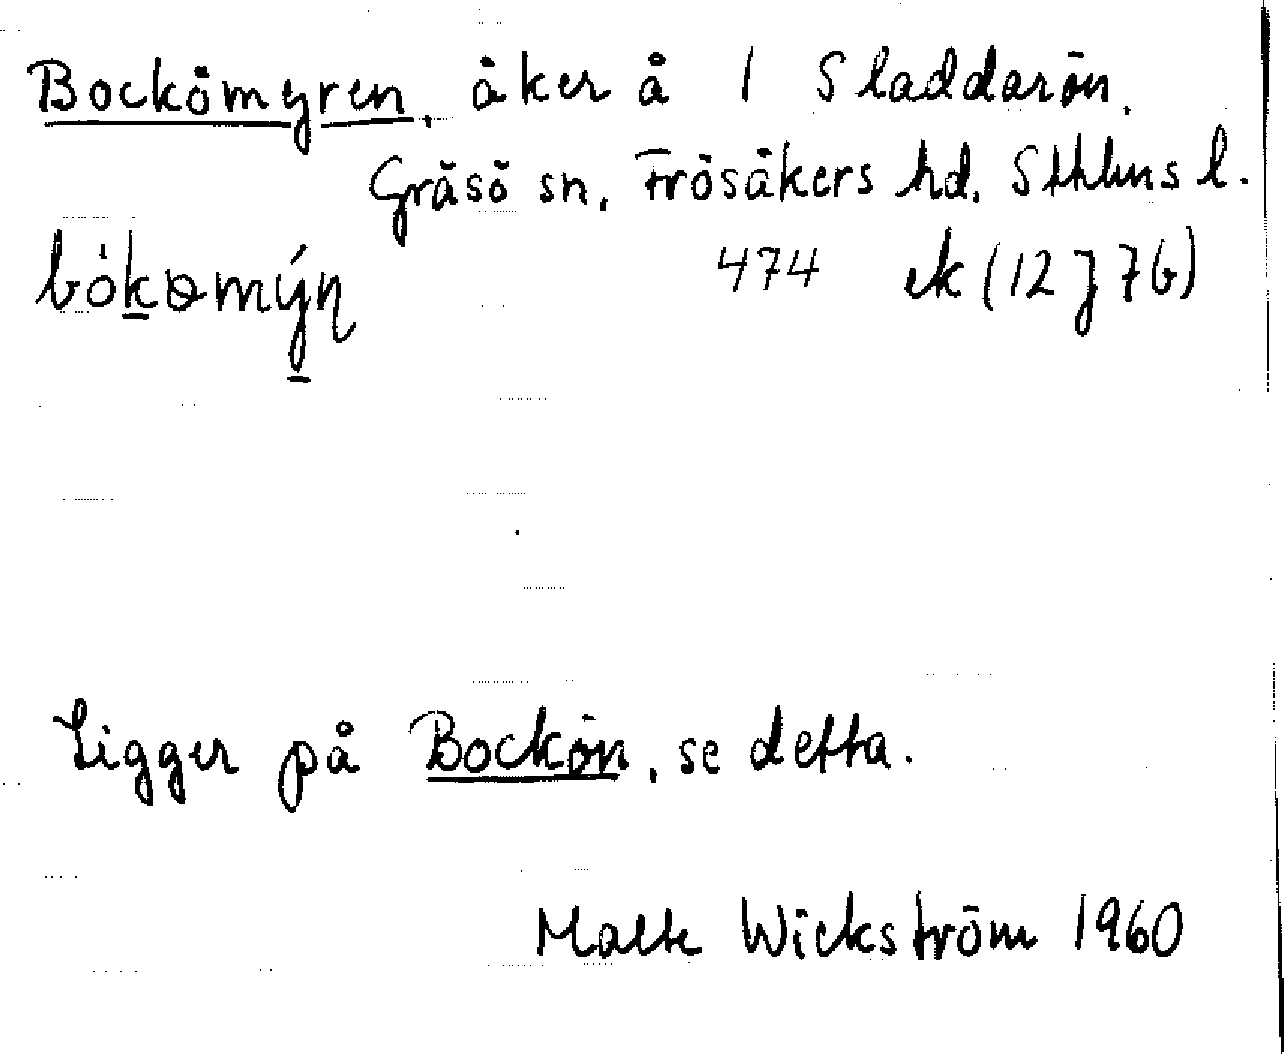 Bockömyren, åker å 1 Sladdarön,
Gräsö sn, Frösåkers hd, Sthlms l.
474 ek (12 J 7b)
Ligger på Bockön, se detta.
Malte Wickström 1960